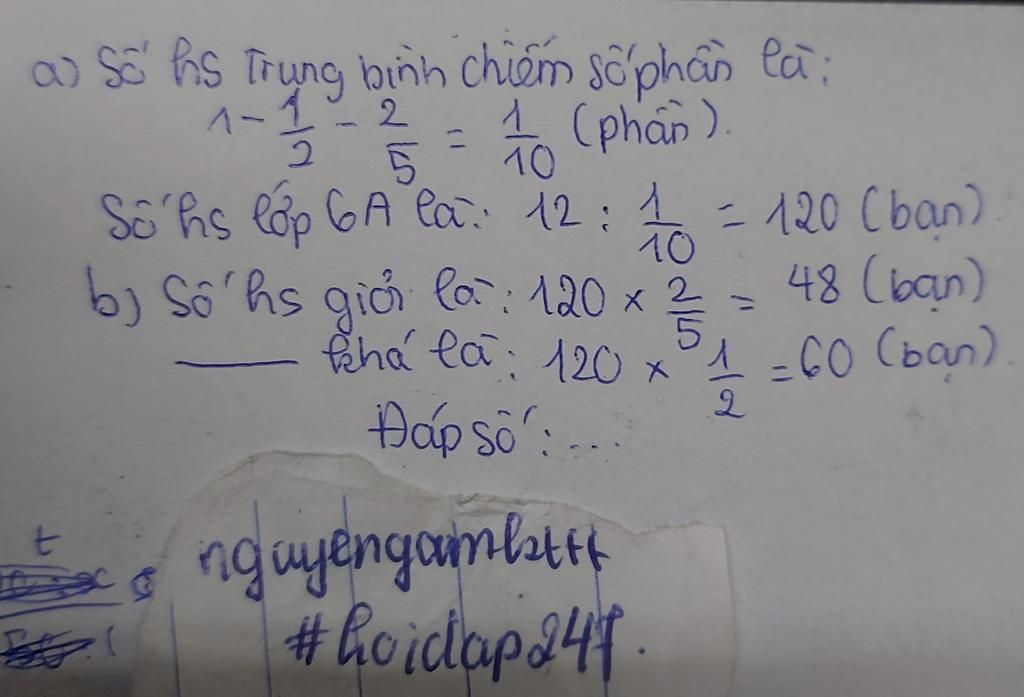 a) Số hs Trung bình chiếm số phần là:
1 - 1/2 - 2/5 = 1/10 (phần).
Số hs lớp 6A là: 12 : 1/10 = 120 (bạn)
b) Số hs giỏi là: 120 × 2/5 = 48 (bạn)
—— khá là: 120 × 1/2 = 60 (bạn).
Đáp số: ...
t
#hoidap247.